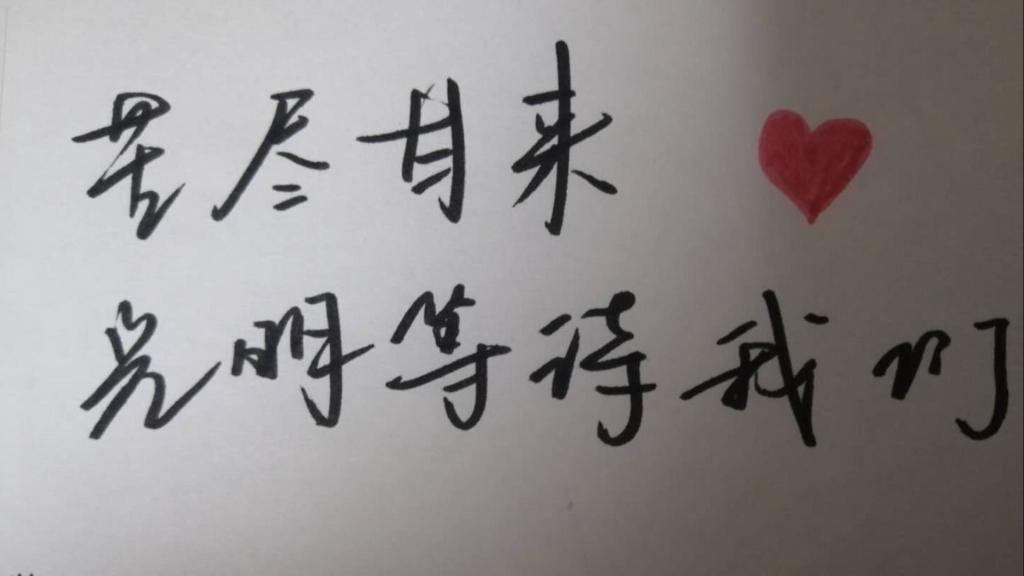 苦尽甘来
光明等待我们